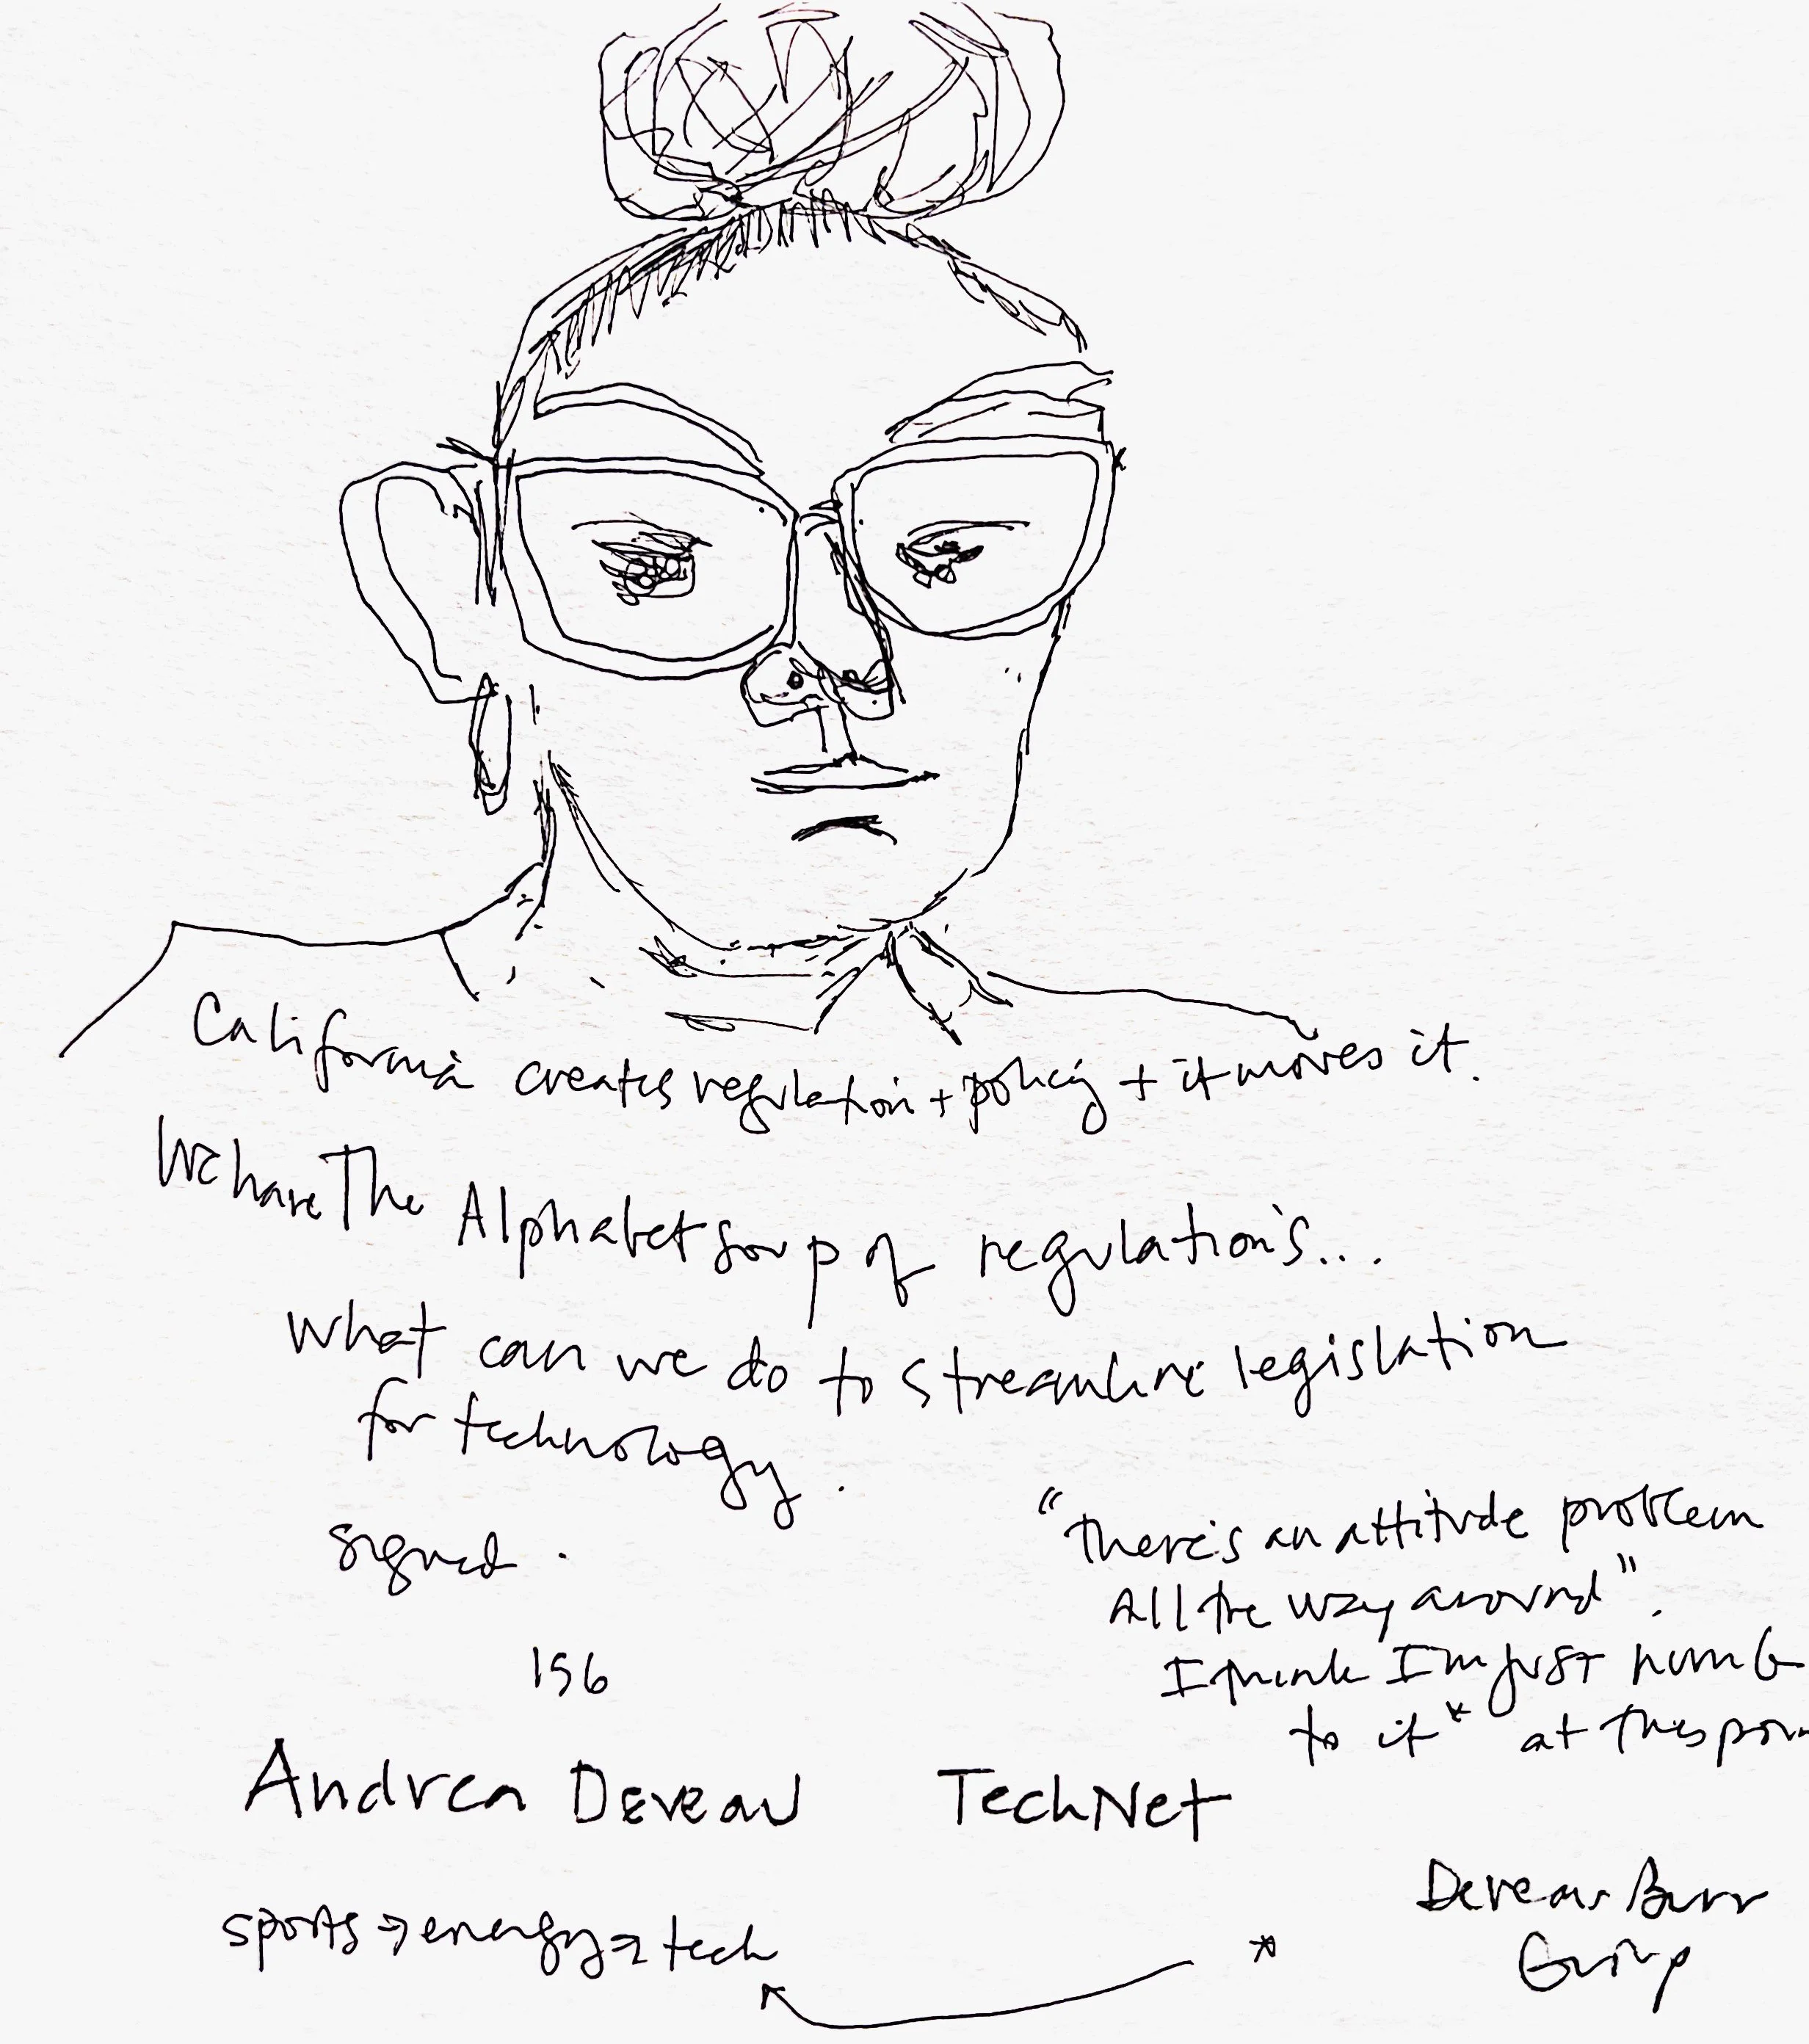 California creates regulation + policy + it moves it.
We have The Alphabet soup of regulations...
what can we do to streamline legislation
for technology.
signed.
"there's an attitude problem
All the way around".
I think I'm just numb
to it* at this poin
156
Andrea Deveau TechNet
Deveau Burr
Group
sports → energy → tech
*